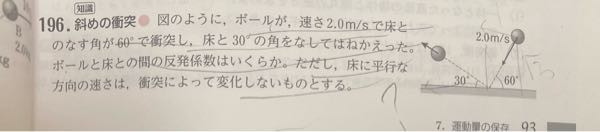 知識
196. 斜めの衝突 図のように，ボールが，速さ2.0m/sで床と
のなす角が60°で衝突し，床と30°の角をなしてはねかえった。
ボールと床との間の反発係数はいくらか。ただし，床に平行な
方向の速さは，衝突によって変化しないものとする。
2.0m/s
30°
60°
√3
B
2.0m
kg
7. 運動量の保存 93